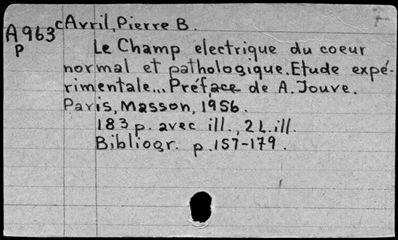 A963 cAvril, Pierre B.
P
Le Champ electrique du coeur
normal et pathologique. Etude expé-
rimentale... Préface de A. Jouve.
Paris, Masson, 1956.
183 p. avec ill., 2 L. ill.
Bibliogr. p. 157-179.